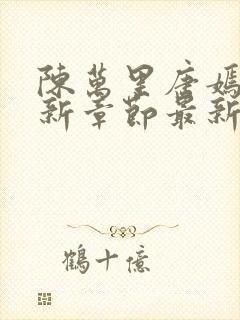 陳萬里唐嫣
新章節最新
鶴十億